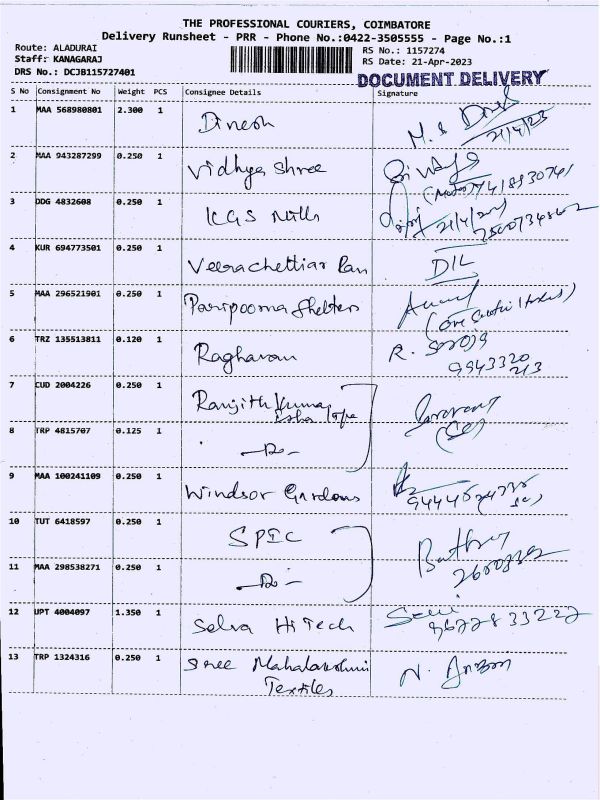 THE PROFESSIONAL COURIERS, COIMBATORE
Delivery Runsheet - PRR - Phone No.:0422-3505555 - Page No.:1
Route: ALADURAI
Staff: KANAGARAJ
DRS No.: DCJB115727401
RS No.: 1157274
RS Date: 21-Apr-2023
DOCUMENT DELIVERY
S No Consignment No Weight PCS Consignee Details Signature
1 MAA 568980801 2.300 1 Dinesh
21/4/23
2 MAA 943287299 0.250 1 Vidhya Shree
3 DDG 4832608 0.250 1 KGS Mills
4 KUR 694773501 0.250 1 Veerachettiar Pan DIL
5 MAA 296521901 0.250 1 Paripoorna Shelters
6 TRZ 135513811 0.120 1 Raghavan R. Saroja
9943320
213
7 CUD 2004226 0.250 1 Ranjith Kumar
8 TRP 4815707 0.125 1 -Do-
9 MAA 100241109 0.250 1 Windsor Gardens
10 TUT 6418597 0.250 1 SPIC
11 MAA 298538271 0.250 1 -Do-
12 UPT 4004097 1.350 1 Selva HiTech
13 TRP 1324316 0.250 1 Shree Mahalakshmi
Textiles